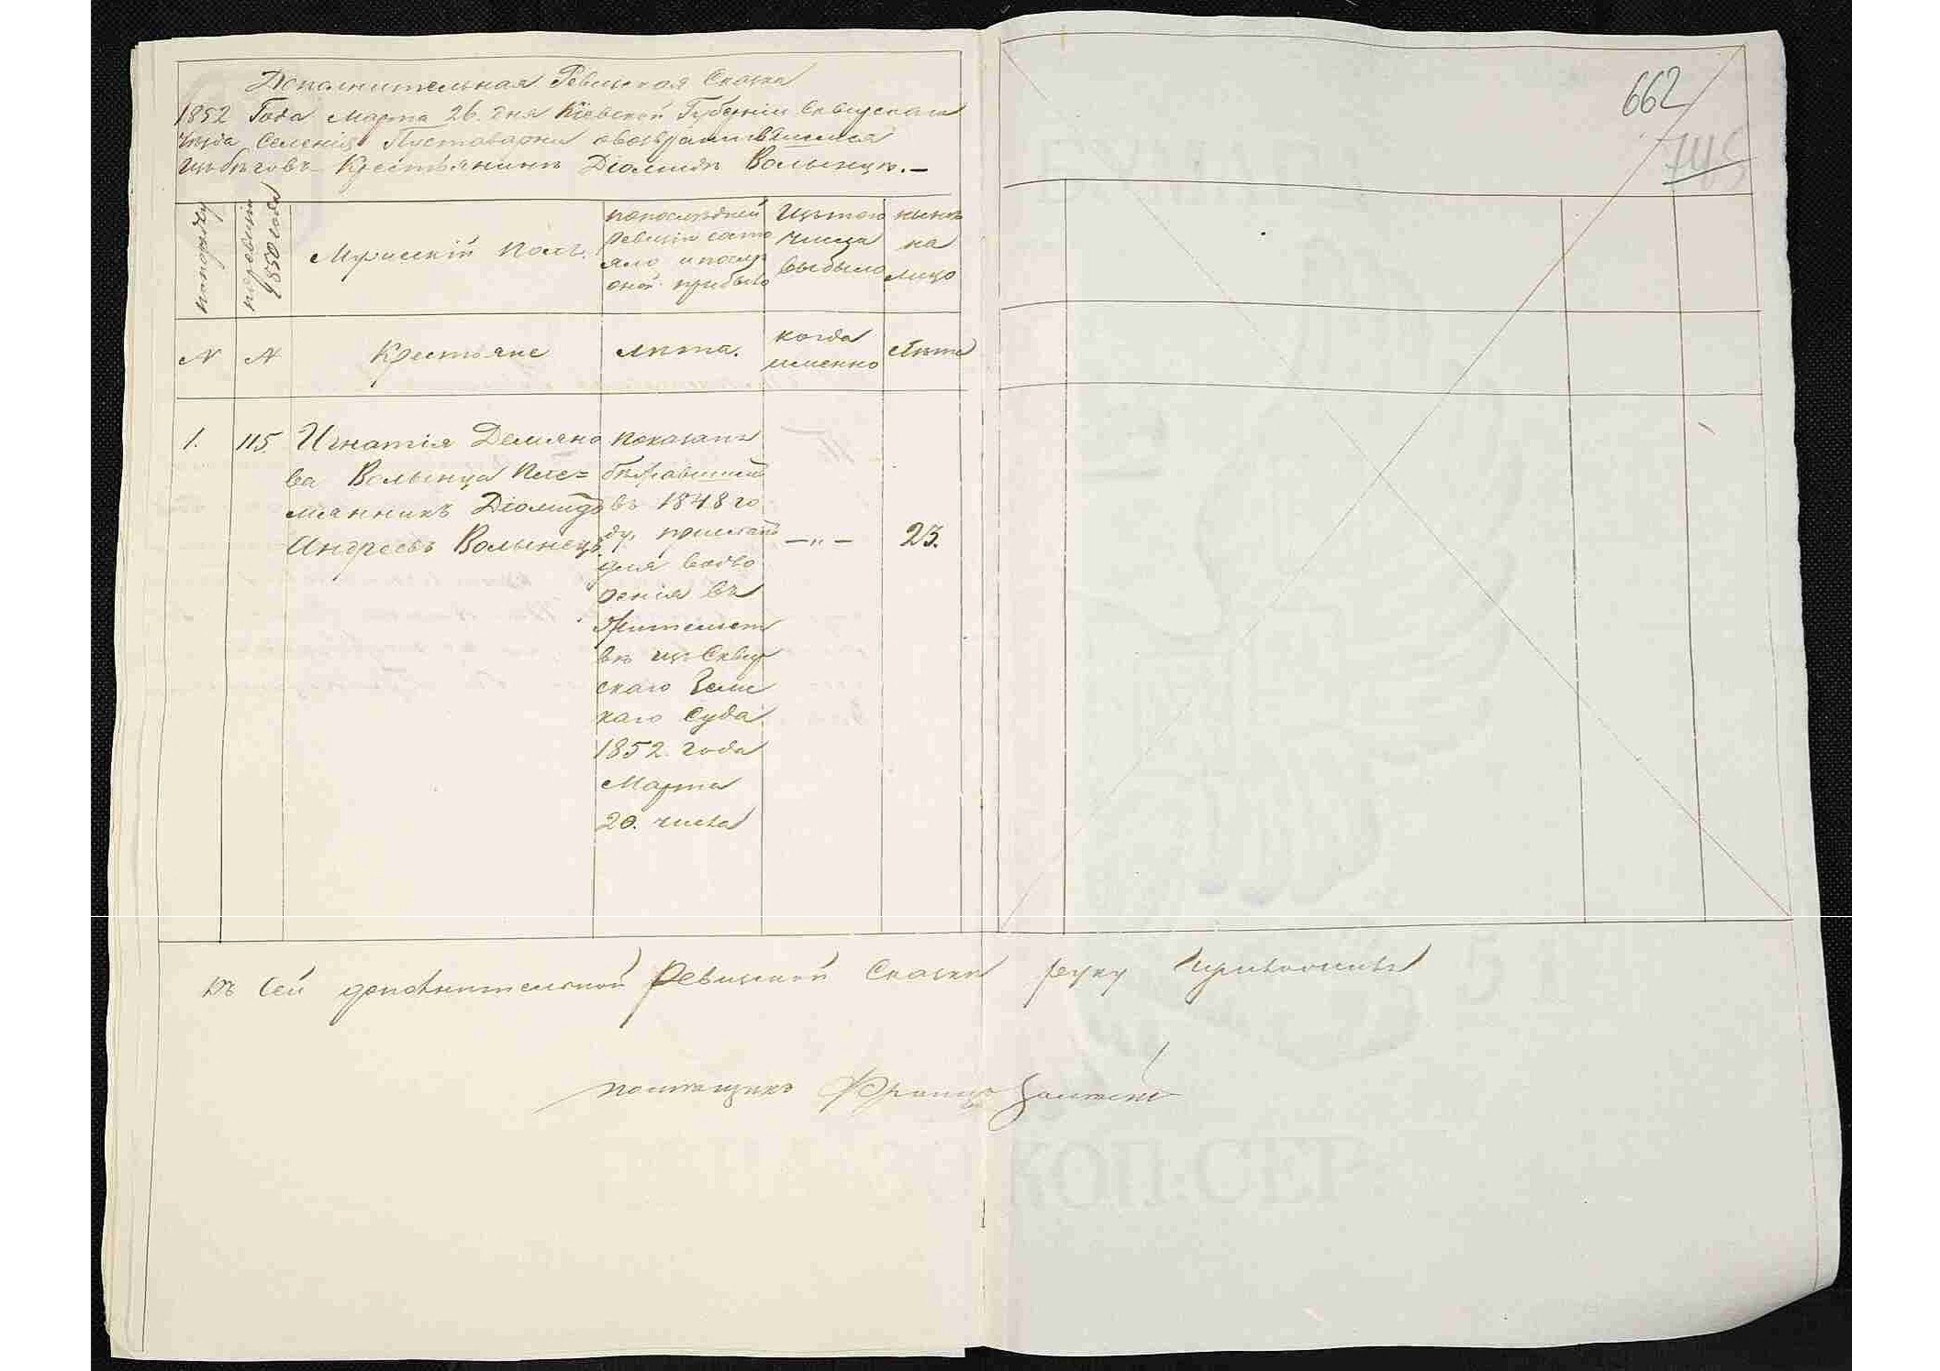 Дополнительная Ревизская Сказка
1852 Года Марта 26. дня Кіевской Губерніи Сквирскаго
Уезда Селенія Пустоварки о возвратившемся
изъ беговъ Крестьянинъ Діомидъ Волынцъ.—
662
745
попорядку
поревизіи 1850 года
Мужескій полъ.
попоследней ревизіи состояло и после оной прибыло
Изътого числа выбыло
ныне на лицо
N
N
Крестьяне
лета.
когда именно
лета
1.
115
Игнатія Демяно
ва Волынца Пле=
мянникъ Діомидъ
Андреевъ Волынецъ.
показанъ
бежавшимъ
въ 1848 го
ду. присланъ
для водво
ренія въ
жительст
ве изъ Сквир
скаго Земс
каго Суда
1852. года
Марта
20. числа
— „ —
23.
Къ Сей дополнительной Ревизской Сказки руку приложилъ
помещикъ Францъ
КОП:СЕР
51